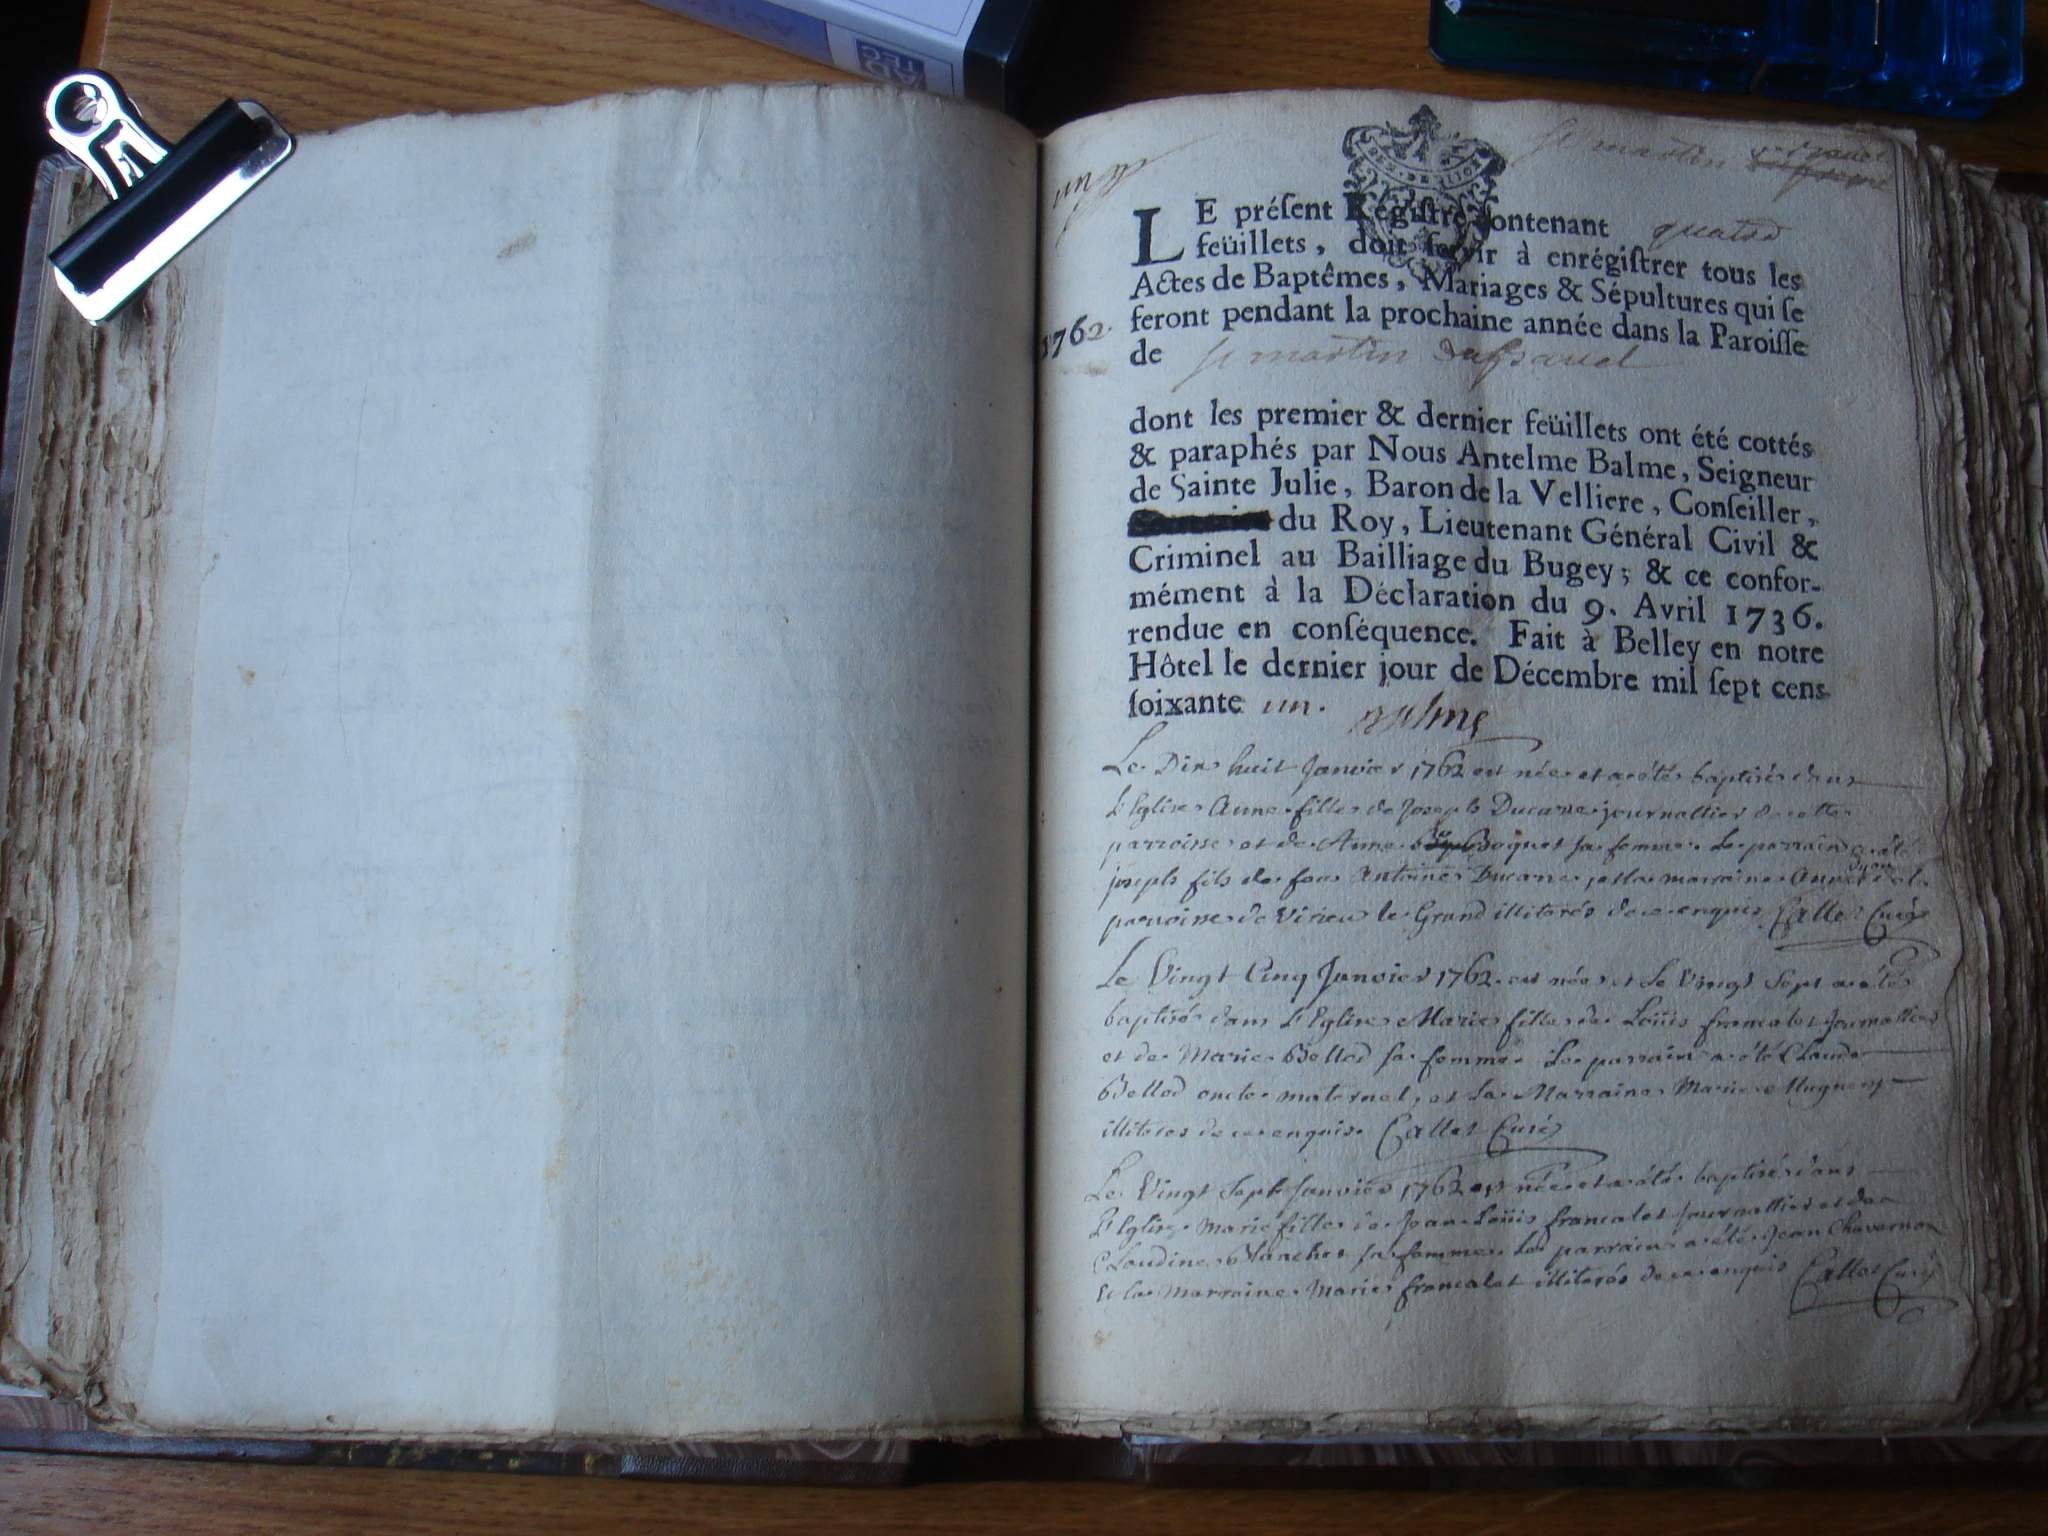 AD
TEC
un
GEN. DE LION
St martin
LE préſent Régiſtre contenant quatre
feüillets, doit ſervir à enrégiſtrer tous les
Actes de Baptêmes, Mariages & Sépultures qui ſe
feront pendant la prochaine année dans la Paroiſſe
1762.
de St martin
dont les premier & dernier feüillets ont été cottés
& paraphés par Nous Antelme Balme, Seigneur
de Sainte Julie, Baron de la Velliere, Conſeiller,
du Roy, Lieutenant Général Civil &
Criminel au Bailliage du Bugey; & ce confor-
mément à la Déclaration du 9. Avril 1736.
rendue en conſéquence. Fait à Belley en notre
Hôtel le dernier jour de Décembre mil ſept cens
ſoixante un. Balme
Le Dix huit Janvier 1762 est née et a été baptisée dans
L'Eglise Anne fille de Joseph Ducarre journallier de cette
parroisse et de Anne Boquet sa femme. Le parrain a été
joseph fils de feu Antoine Ducarre, et la marraine Anne de la
parroisse de Virieu le Grand illiterés de ce enquis Callet Curé
Le Vingt Cinq Janvier 1762. est née et Le Vingt Sept a été
baptisée dans L'Eglise Marie fille de Loüis francalet Journallier
et de Marie Bellod sa femme. Le parrain a été Claude
Bellod oncle maternel, et la Marraine Marie Mugnery
illiteres de ce enquis. Callet Curé
Le Vingt Sept Janvier 1762 est née et a été baptisée dans
L'Eglise Marie fille de Jean Loüis francalet Journallier et de
Claudine Blanchet sa femme. Le parrain a été Jean Chavernon
Et la Marraine Marie francalet illiterés de ce enquis Callet Curé